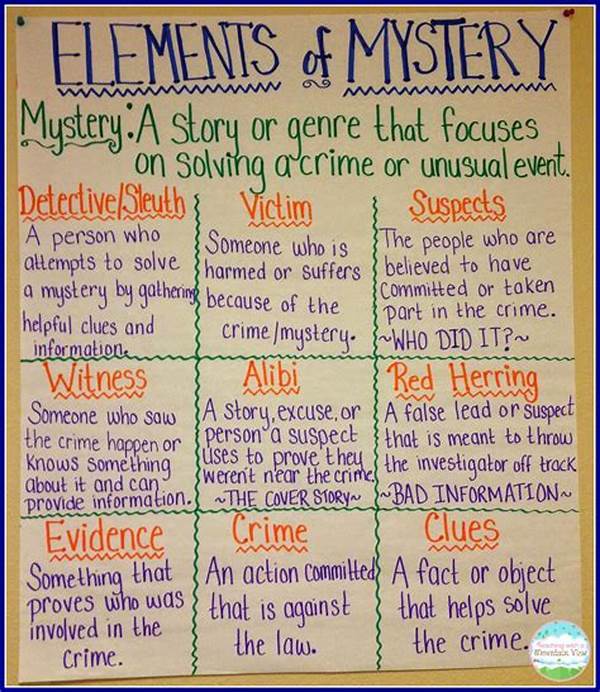 ELEMENTS of MYSTERY
Mystery: A story or genre that focuses
on solving a crime or unusual event.
Detective/Sleuth
A person who
attempts to solve
a mystery by gathering
helpful clues and
information.
Victim
Someone who is
harmed or suffers
because of the
crime/mystery.
Suspects
The people who are
believed to have
committed or taken
part in the crime.
~WHO DID IT?~
Witness
Someone who saw
the crime happen or
knows something
about it and can
provide information.
Alibi
A story, excuse, or
person a suspect
uses to prove they
weren't near the crime.
~THE COVER STORY~
Red Herring
A false lead or suspect
that is meant to throw
the investigator off track
~BAD INFORMATION~
Evidence
Something that
proves who was
involved in the
crime.
Crime
An action committed
that is against
the law.
Clues
A fact or object
that helps solve
the crime.
Teaching with a
Mountain View